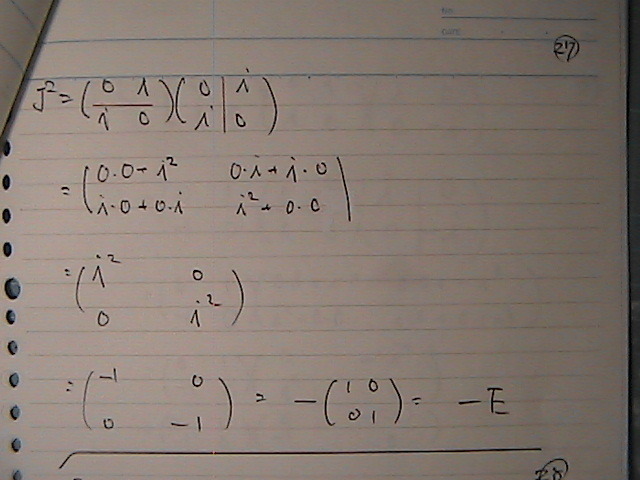 NO.
DATE
27
J² = (0 i / i 0)(0 i / i 0)
= (0·0+i² 0·i+i·0 / i·0+0·i i²+0·0)
= (i² 0 / 0 i²)
= (-1 0 / 0 -1) = -(1 0 / 0 1) = -E
28